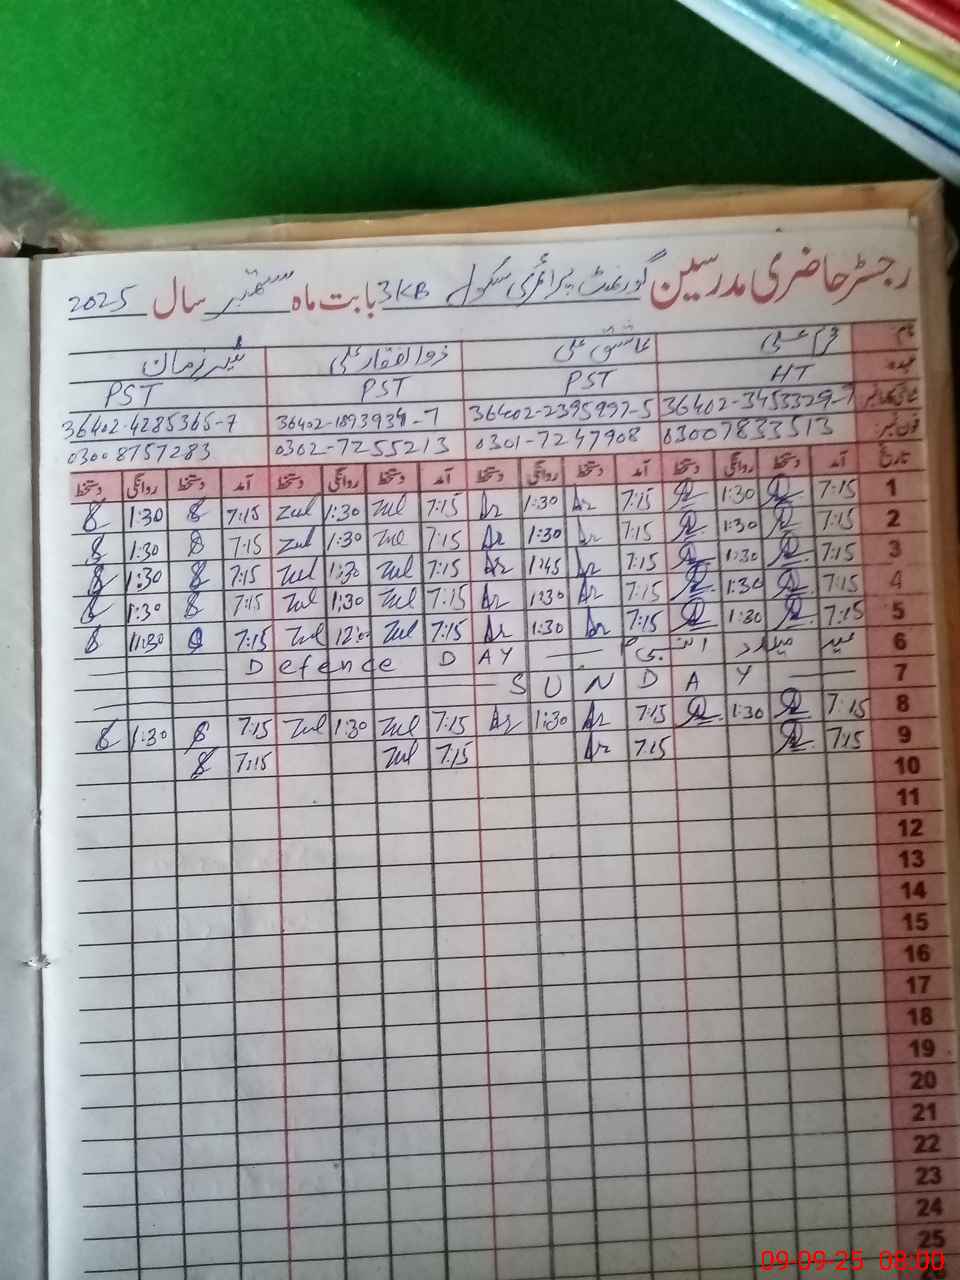 رجسٹر حاضری مدرسین گورنمنٹ پرائمری سکول 3KB بابت ماہ ستمبر سال 2025
نام عاشق علی ذوالفقار علی شیر زمان
عہدہ HT PST PST PST
36402-3453329-7 36402-2395997-5 36402-1893934-7 36402-4285365-7
فون نمبر 03007833513 0301-7247908 0302-7255213 03008757283
تاریخ آمد دستخط روانگی دستخط آمد دستخط روانگی دستخط آمد دستخط روانگی دستخط آمد دستخط روانگی دستخط
1 7:15 1:30 7:15 Ar 1:30 Ar 7:15 Zul 1:30 Zul 7:15 8 1:30 8
2 7:15 1:30 7:15 Ar 1:30 Ar 7:15 Zul 1:30 Zul 7:15 8 1:30 8
3 7:15 1:30 7:15 Ar 1:45 Ar 7:15 Zul 1:30 Zul 7:15 8 1:30 8
4 7:15 1:30 7:15 Ar 1:30 Ar 7:15 Zul 1:30 Zul 7:15 8 1:30 8
5 7:15 1:30 7:15 Ar 1:30 Ar 7:15 Zul 12:0 Zul 7:15 8 11:30 8
6 عید میلاد النبی Defence DAY
7 SUNDAY
8 7:15 1:30 7:15 Ar 1:30 Ar 7:15 Zul 1:30 Zul 7:15 8 1:30 8
9 7:15 7:15 Ar 7:15 Zul 7:15 8
10
11
12
13
14
15
16
17
18
19
20
21
22
23
24
25
09-09-25 08:00